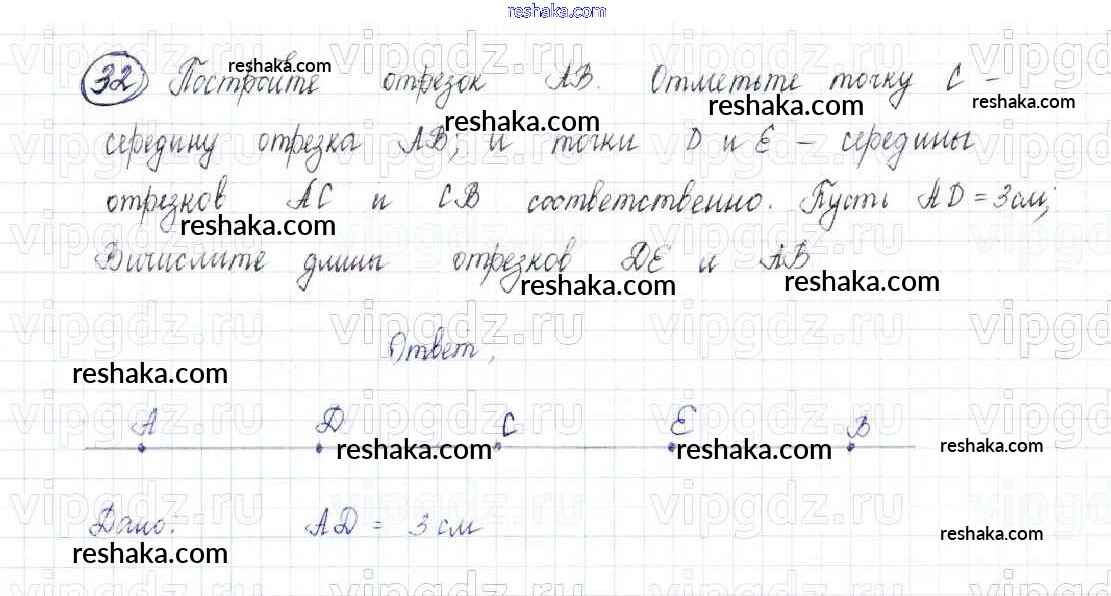 reshaka.com
32 Постройте отрезок AB. Отметьте точку C –
середину отрезка AB; и точки D и E – середины
отрезков AC и CB соответственно. Пусть AD = 3 см;
Вичислите длины отрезков DE и AB
Ответ,
A D C E B
Дано: AD = 3 см
reshaka.com
reshaka.com
reshaka.com
reshaka.com
reshaka.com
reshaka.com
reshaka.com
reshaka.com
reshaka.com
reshaka.com
reshaka.com
reshaka.com
reshaka.com
reshaka.com
vipgdz.ru
vipgdz.ru
vipgdz.ru
vipgdz.ru